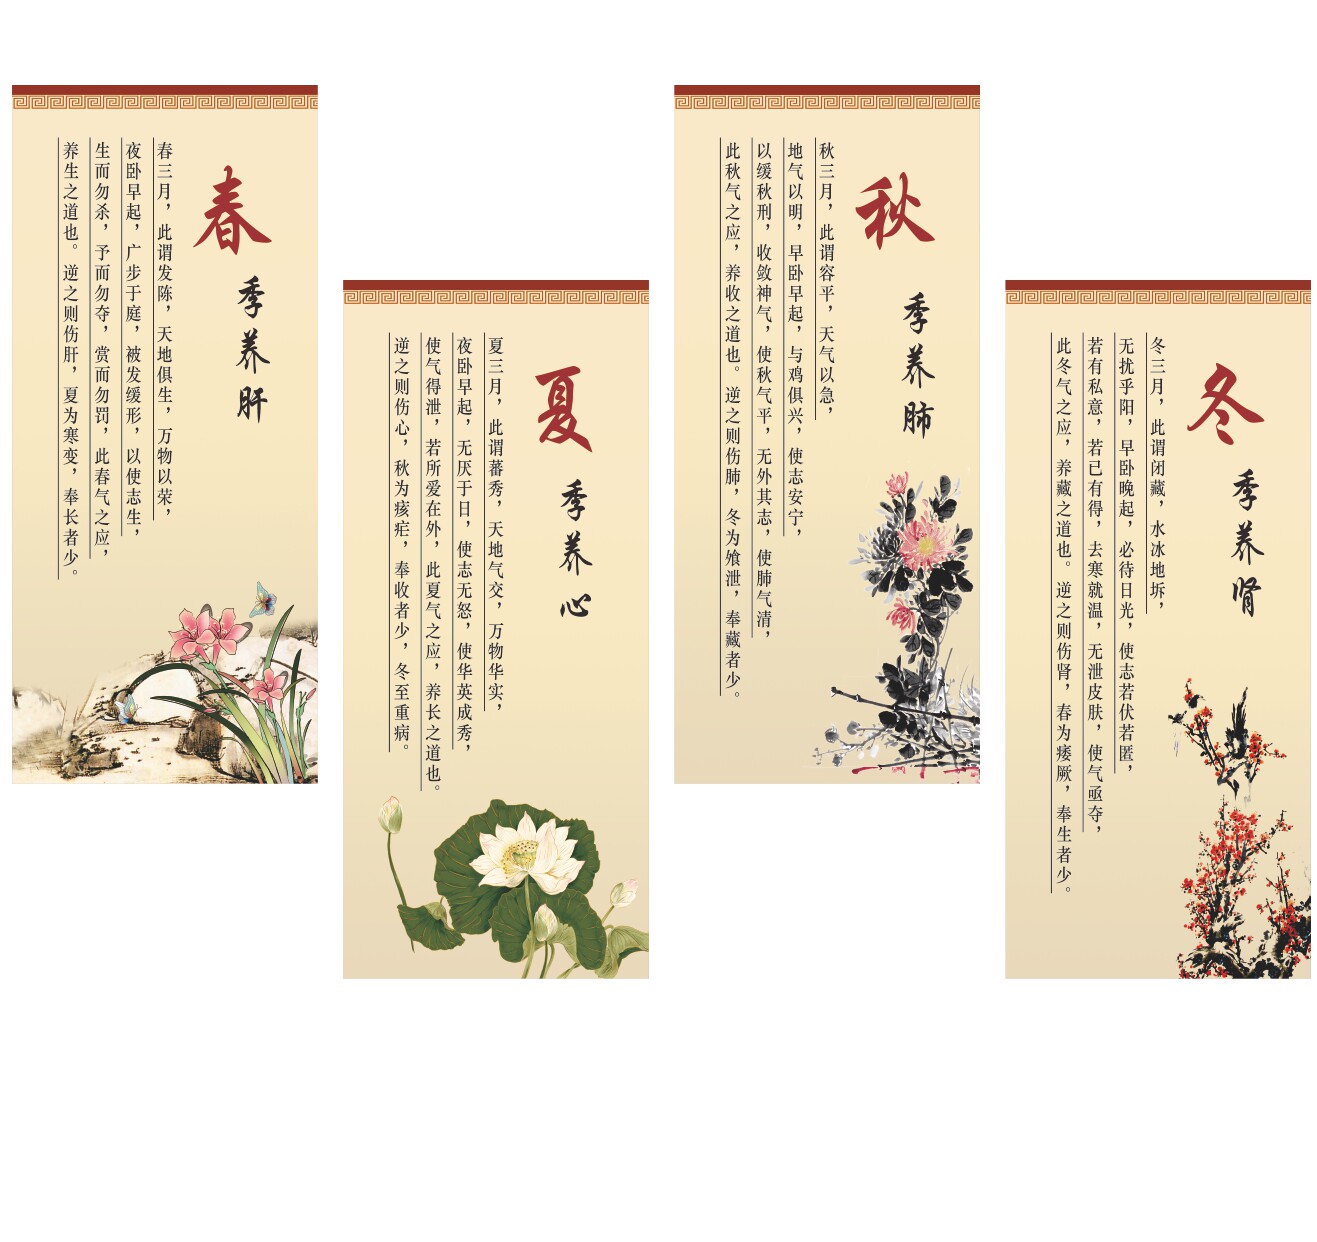 春
季养肝
春三月，此谓发陈，天地俱生，万物以荣，
夜卧早起，广步于庭，被发缓形，以使志生，
生而勿杀，予而勿夺，赏而勿罚，此春气之应，
养生之道也。逆之则伤肝，夏为寒变，奉长者少。
夏
季养心
夏三月，此谓蕃秀，天地气交，万物华实，
夜卧早起，无厌于日，使志无怒，使华英成秀，
使气得泄，若所爱在外，此夏气之应，养长之道也。
逆之则伤心，秋为痎疟，奉收者少，冬至重病。
秋
季养肺
秋三月，此谓容平，天气以急，
地气以明，早卧早起，与鸡俱兴，使志安宁，
以缓秋刑，收敛神气，使秋气平，无外其志，使肺气清，
此秋气之应，养收之道也。逆之则伤肺，冬为飧泄，奉藏者少。
冬
季养肾
冬三月，此谓闭藏，水冰地坼，
无扰乎阳，早卧晚起，必待日光，使志若伏若匿，
若有私意，若已有得，去寒就温，无泄皮肤，使气亟夺，
此冬气之应，养藏之道也。逆之则伤肾，春为痿厥，奉生者少。